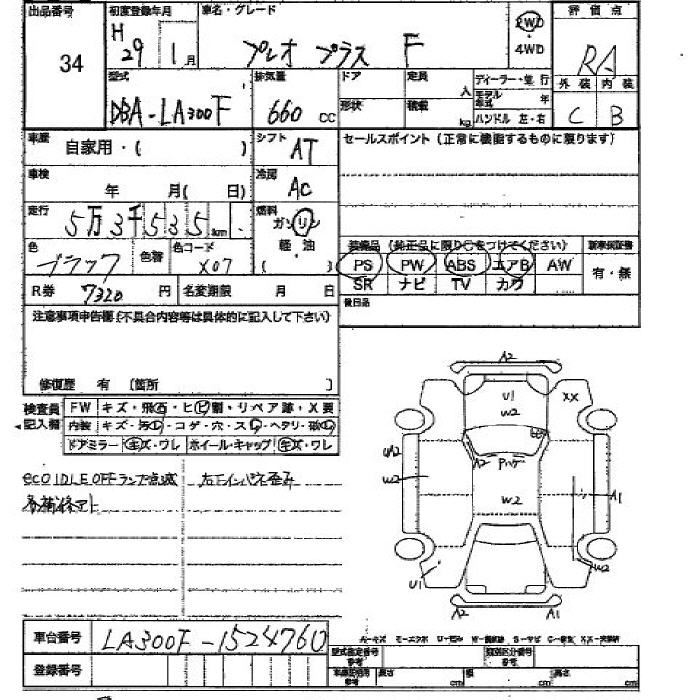 出品番号 34
初度登録年月 H 29 1月
車名・グレード プレオ プラス F
2WD ・ 4WD
評価点 RA
型式 DBA-LA300F
排気量 660 cc
ドア 形状
定員 人 積載 kg
ディーラー・並行
モデル年式 年
ハンドル 左・右
外装 内装
C B
車歴 自家用・( )
シフト AT
セールスポイント (正常に機能するものに限ります)
車検 年 月( 日)
冷房 AC
走行 5万3千535km
燃料 ガソリン ・ 軽油 ( )
色 ブラック 色替 色コード X07
装備品 (純正品に限り○をつけてください)
新車保証書
PS PW ABS エアB AW
SR ナビ TV カワ
有・無
R券 7320 円 名変期限 月 日
後日品
注意事項申告欄 (不具合内容等は具体的に記入して下さい)
修復歴 有 [箇所 ]
検査員記入欄
FW キズ・飛石・ヒビ割・リペア跡・X要
内装 キズ・汚れ・コゲ・穴・スレ・ヘタリ・
ドアミラー キズ・ワレ ホイール・キャップ キズ・ワレ
eco IDLE OFFランプ点滅
左右インパネ歪み
A2
U1
W2
XX
A2
W2
A2
W2
A1
U1
W2
A2 A1
車台番号 LA300F-1524760
登録番号
型式指定番号 参考
類別区分番号 参考
長さ cm 幅 cm 高さ cm